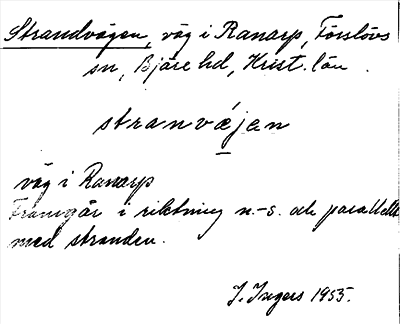 Strandvägen, väg i Ranarp, Förslövs
sn, Bjäre hd, Krist. län.
stranvæjan
väg i Ranarp
Framgår i riktning n.-s. och parallellt
med stranden.
J. Ingers 1955.